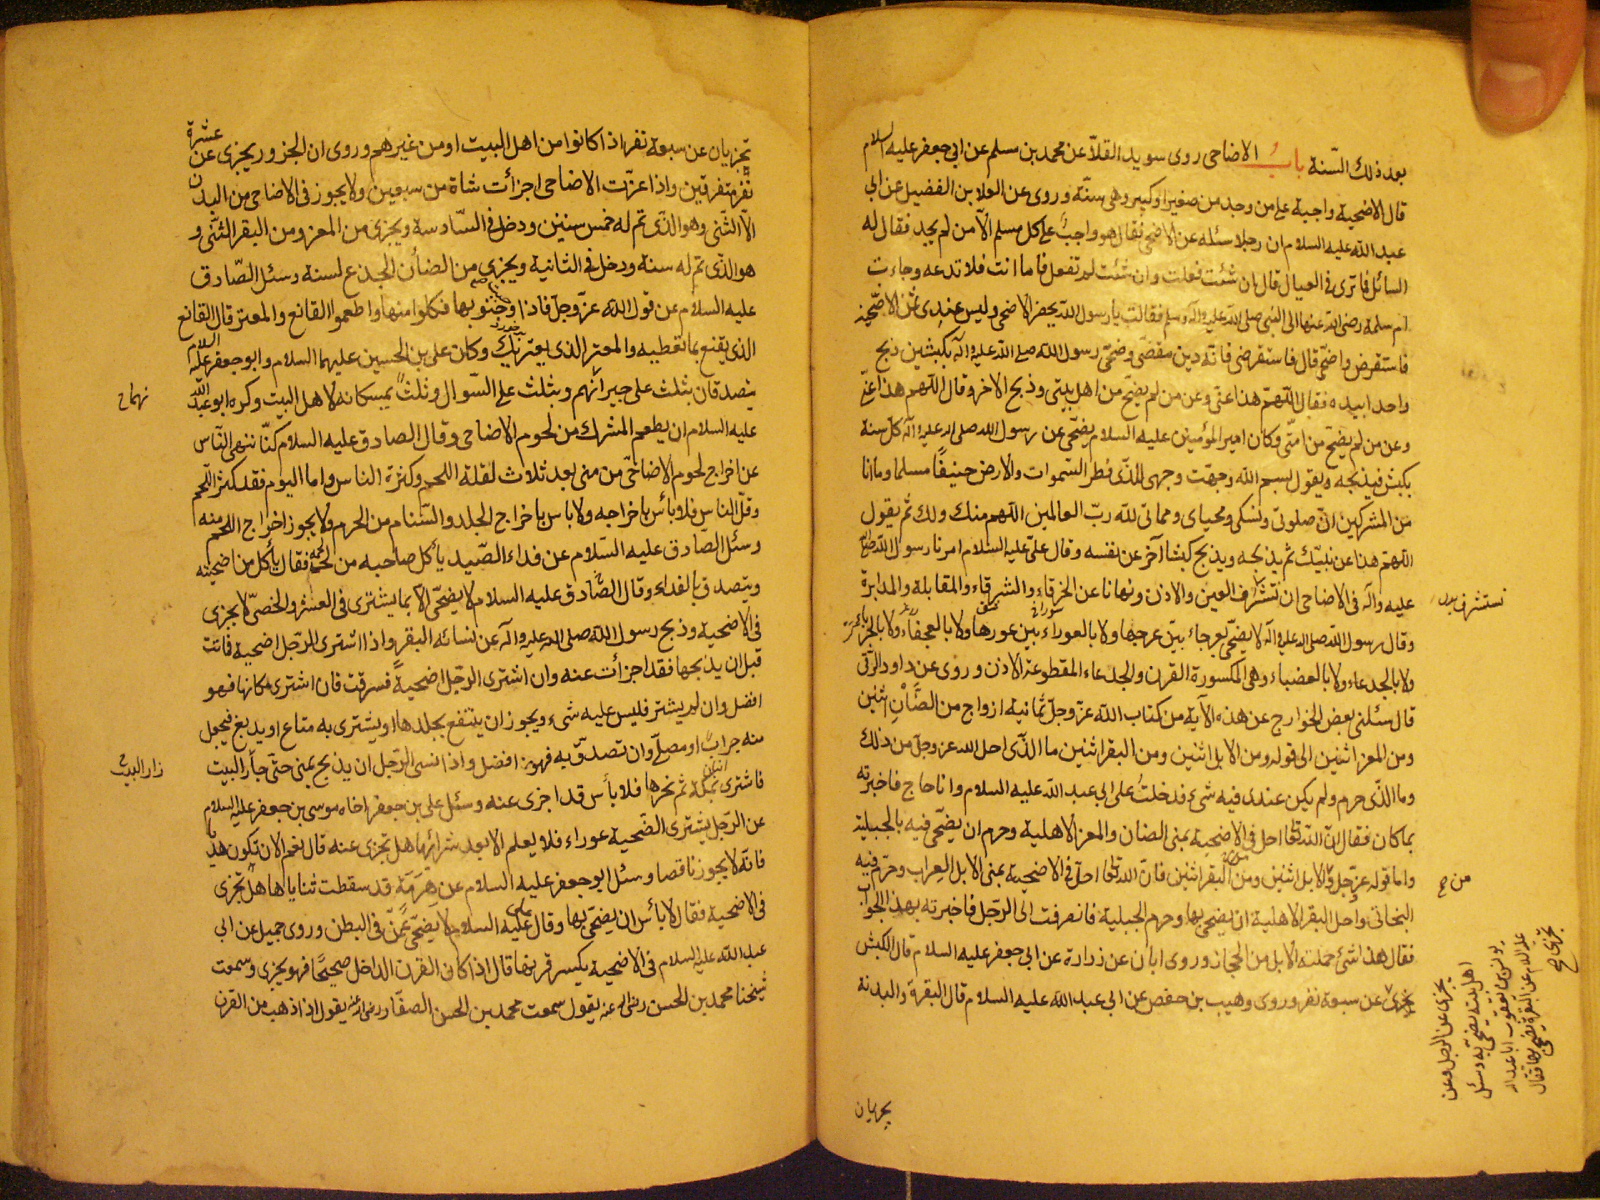 بعد ذلك السّنة باب الاضاحى روى سويد القلّا عن محمد بن مسلم عن ابى جعفر عليه السلام
قال الاضحية واجبة على من وجد من صغير او كبير وهى سنّة وروى عن العلا بن الفضيل عن ابى
عبد الله عليه السلام ان رجلا سئله عن الاضحى فقال هو واجب على كل مسلم الّا من لم يجد فقال له
السائل فما ترى فى العيال قال ان شئت فعلت وان شئت لم تفعل فاما انت فلا تدعه وجاءت
ام سلمة رضى الله عنها الى النبى صلى الله عليه وآله وسلم فقالت يا رسول الله يحضر الاضحى وليس عندى ثمن الاضحيّة
فاستقرض واضحّى قال فاستقرضى فانّه دين مقضىّ وضحّى رسول الله صلى الله عليه وآله بكبشين ذبح
واحدا بيده فقال اللّهم هذا عنّى وعن من لم يضحّ من اهل بيتى وذبح الاخر وقال اللّهم هذا عنّى
وعن من لم يضحّ من امّتى وكان امير المؤمنين عليه السلام يضحّى عن رسول الله صلى الله عليه وآله كل سنة
بكبش فيذبحه ويقول بسم الله وجهت وجهى للذى فطر السّموات والارض حنيفًا مسلما وما انا
من المشركين انّ صلوتى ونسكى ومحياى ومماتى لله ربّ العالمين اللّهم منك ولك ثم يقول
اللّهم هذا عن نبيّك ثم يذبحه ويذبح كبشا آخر عن نفسه وقال علىّ عليه السّلام امرنا رسول الله صلى الله
عليه وآله فى الاضاحى ان نستشرف العين والاذن ونهانا عن الخرقاء والشرقاء والمقابلة والمدابرة
وقال رسول الله صلى الله عليه وآله لا يضحّى بعرجاء بيّن عرجها ولا بالعوراء بيّن عورها ولا بالعجفاء ولا بالجرباء
ولا بالجدعاء ولا بالعضباء وهى المكسورة القرن والجدعاء المقطوعة الاذن وروى عن داود الرّقى
قال سئلنى بعض الخوارج عن هذه الآية من كتاب الله عزّ وجلّ ثمانية ازواج من الضّأن اثنين
ومن المعز اثنين الى قوله ومن الابل اثنين ومن البقر اثنين ما الّذى احل الله عز وجلّ من ذلك
وما الذّى حرم ولم يكن عندى فيه شىء فدخلت على ابى عبد الله عليه السلام وانا حاج فاخبرته
بما كان فقال انّ الله تعالى احل فى الاضحية بمنى الضان والمعز الاهلية وحرم ان يضحّى فيه بالجبلية
واما قوله عزّ وجلّ ومن الابل اثنين ومن البقر اثنين فانّ الله تعالى احلّ فى الاضحية بمنى الابل العراب وحرّم فيه
البخاتى واحل البقر الاهلية ان يضحى بها وحرم الجبلية فانصرفت الى الرّجل فاخبرته بهذا الجواب
فقال هذا شىء حملته الابل من الحجاز وروى ابان عن زرارة عن ابى جعفر عليه السلام قال الكبش
يجزى عن سبعة نفر وروى وهيب بن حفص عن ابى عبد الله عليه السلام قال البقرة والبدنة
نستشرف
من صح
يجزى عن الرجل وعن
اهل بيته يضحّى به وسئل
يونس بن يعقوب ابا عبد الله
عليه السلام عن البقرة يضحّى بها فقال
تجزى صح
يجزيان
تجزيان عن سبعة نفر اذا كانوا من اهل البيت او من غيرهم وروى ان الجزور يجزى عن عشرة
نفر متفرقين واذا عزّت الاضاحى اجزأت شاة من سبعين ولا يجوز فى الاضاحى من البدن
الّا الثّنى وهو الذّى تم له خمس سنين ودخل فى السّادسة ويجزى من المعز ومن البقر الثنّى و
هو الذّى تم له سنة ودخل فى الثانية ويجزى من الضأن الجذع لسنة وسئل الصّادق
عليه السلام عن قول الله عزّ وجلّ فاذا وجبت جنوبها فكلوا منها واطعموا القانع والمعتر قال القانع
الذى يقنع بما تعطيه والمعتر الذى يعتريك وكان على بن الحسين عليهما السلام وابو جعفر عليه السلام
يتصدقان بثلث على جيرانهم وبثلث على السّوال وثلث يمسكانه لاهل البيت وكره ابو عبد الله
عليه السلام ان يطعم المشرك من لحوم الاضاحى وقال الصادق عليه السلام كنّا ننهى النّاس
عن اخراج لحوم الاضاحىّ من منى بعد ثلاث لقلة اللحم وكثرة الناس واما اليوم فقد كثر اللّحم
وقلّ الناس فلا بأس باخراجه ولا باس باخراج الجلد والسّنام من الحرم ولا يجوز اخراج اللحم منه
وسئل الصّادق عليه السّلام عن فداء الصّيد يأكل صاحبه من لحمه فقال يأكل من اضحيته
ويتصدق بالفداء وقال الصّادق عليه السلام لا يضحّى الّا بما يشترى فى العشر والخصىّ لا يجزى
فى الاضحية وذبح رسول الله صلى الله عليه وآله عن نسائه البقر واذا اشترى الرّجل اضحية فماتت
قبل ان يذبحها فقد اجزأت عنه وان اشترى الرّجل اضحيةً فسرقت فان اشترى مكانها فهو
افضل وان لم يشتر فليس عليه شىء ويجوز ان ينتفع بجلدها او يشترى به متاع او يدبغ فيجعل
منه جراب او مصلّى وان تصدّق به فهو افضل واذا نسى الرّجل ان يذبح بمنى حتى جاز البيت
فاشترى بمكة ثم نحرها فلا بأس قد اجزى عنه وسئل على بن جعفر اخاه موسى بن جعفر عليه السلام
عن الرّجل يشترى الضّحية عوراء فلا يعلم الا بعد شرائها هل تجزى عنه قال نعم الّا ان تكون هديا
فانّه لا يجوز ناقصا وسئل ابو جعفر عليه السلام عن هرمة قد سقطت ثناياها هل تجزى
فى الاضحية فقال لا بأس ان يضحّى بها وقال على عليه السلام لا يضحّى عمّن فى البطن وروى جميل عن ابى
عبد الله عليه السلام فى الاضحية يكسر قرنها قال اذا كان القرن الداخل صحيحًا فهو يجزى وسمعت
شيخنا محمد بن الحسن رضى الله عنه يقول سمعت محمد بن الحسن الصفّار رضى الله عنه يقول اذا ذهب من القرن
زار البيت